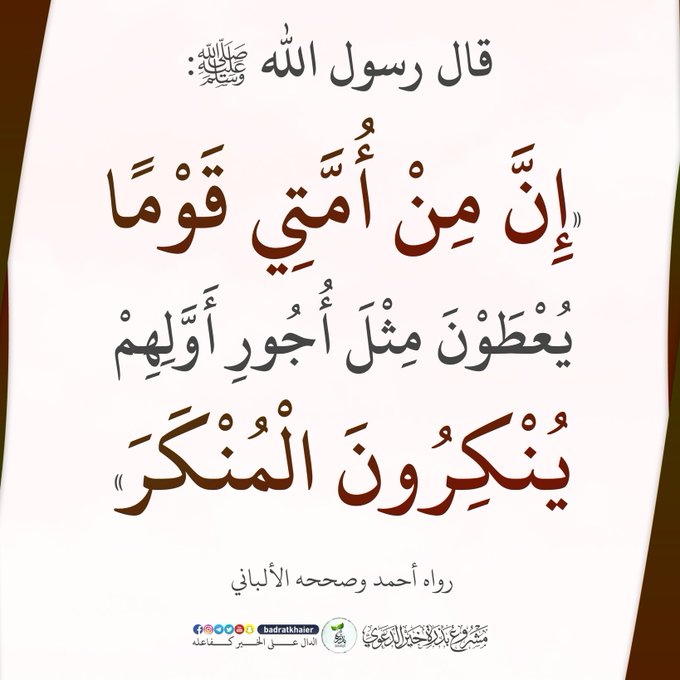 قال رسول الله ﷺ:
«إِنَّ مِنْ أُمَّتِي قَوْمًا
يُعْطَوْنَ مِثْلَ أُجُورِ أَوَّلِهِمْ
يُنْكِرُونَ الْمُنْكَرَ»
رواه أحمد وصححه الألباني
مشروع بذرة خير الدعوي
badratkhaier
الدال على الخير كفاعله